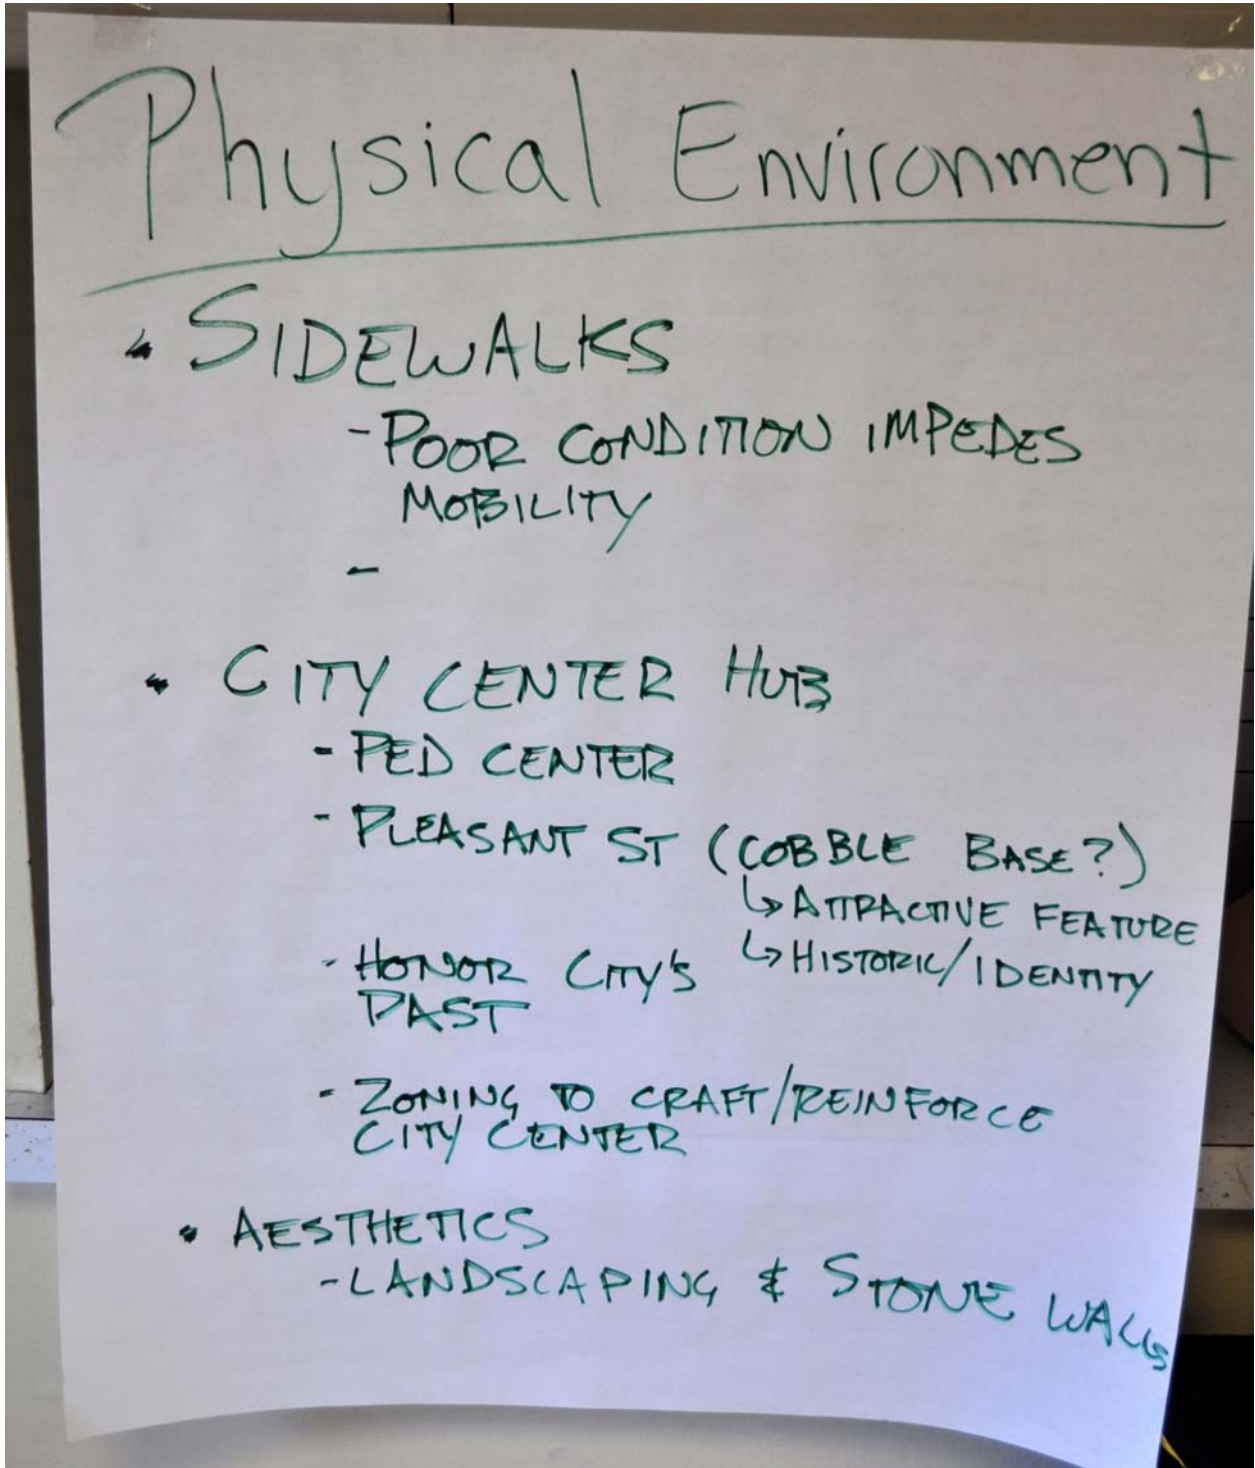 Physical Environment
• SIDEWALKS
- POOR CONDITION IMPEDES
MOBILITY
-
• CITY CENTER HUB
- PED CENTER
- PLEASANT ST (COBBLE BASE?)
↳ ATTRACTIVE FEATURE
↳ HISTORIC/IDENTITY
- HONOR CITY'S
PAST
- ZONING TO CRAFT/REINFORCE
CITY CENTER
• AESTHETICS
- LANDSCAPING & STONE WALLS